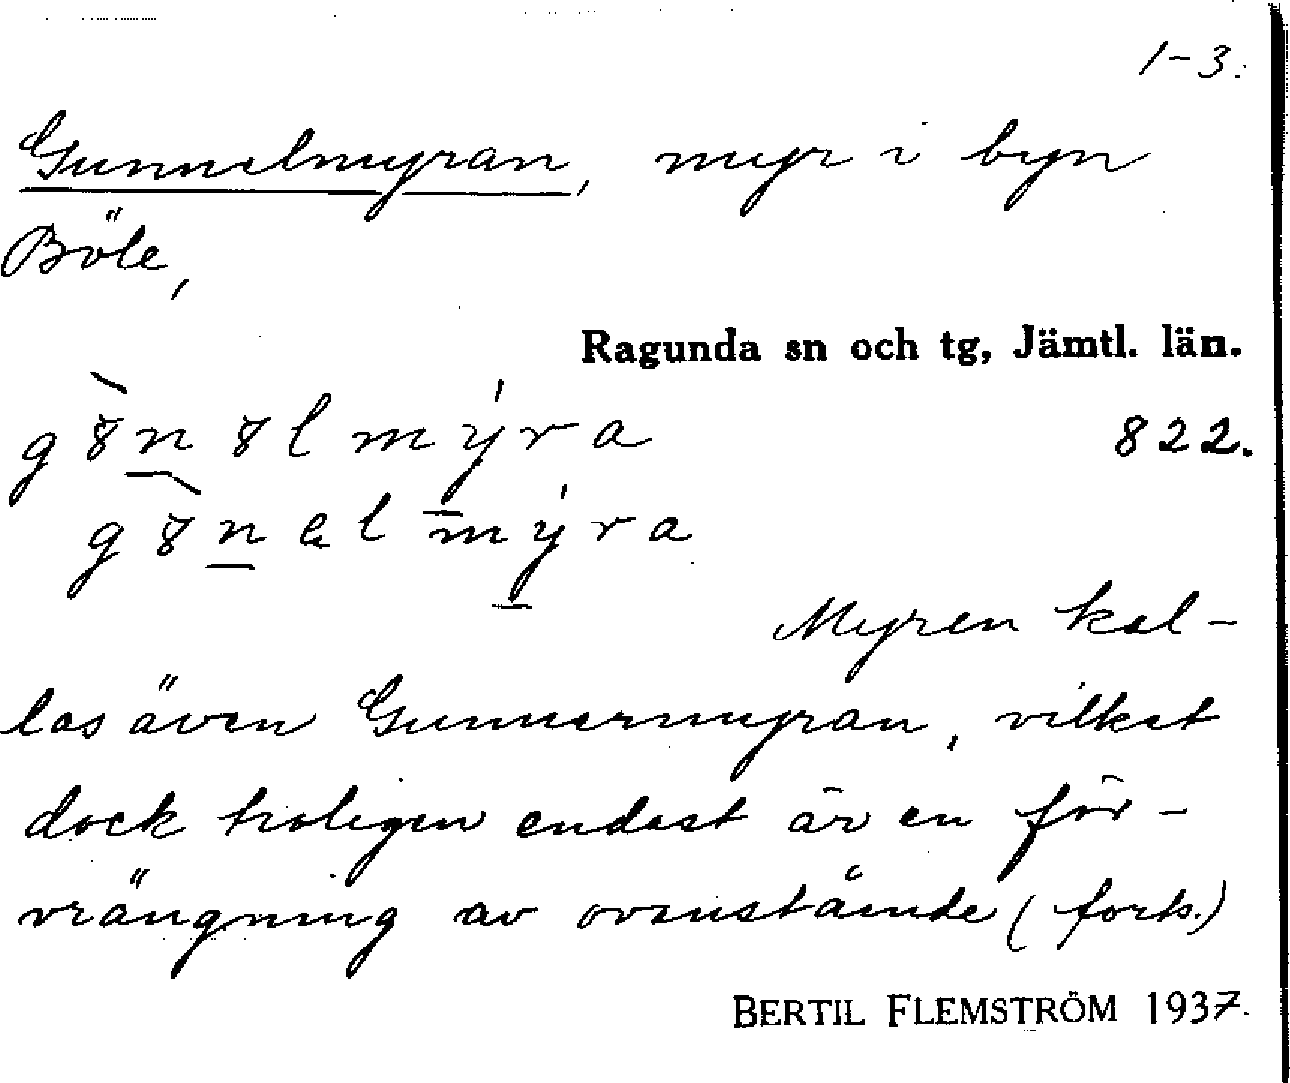 1-3.
Gunnelmyran, myr i byn
Böle,
Ragunda sn och tg, Jämtl. län.
822.
Myren kal-
las även Gunnarmyran, vilket
dock troligen endast är en för-
vrängning av ovanstående (forts.)
BERTIL FLEMSTRÖM 1937.